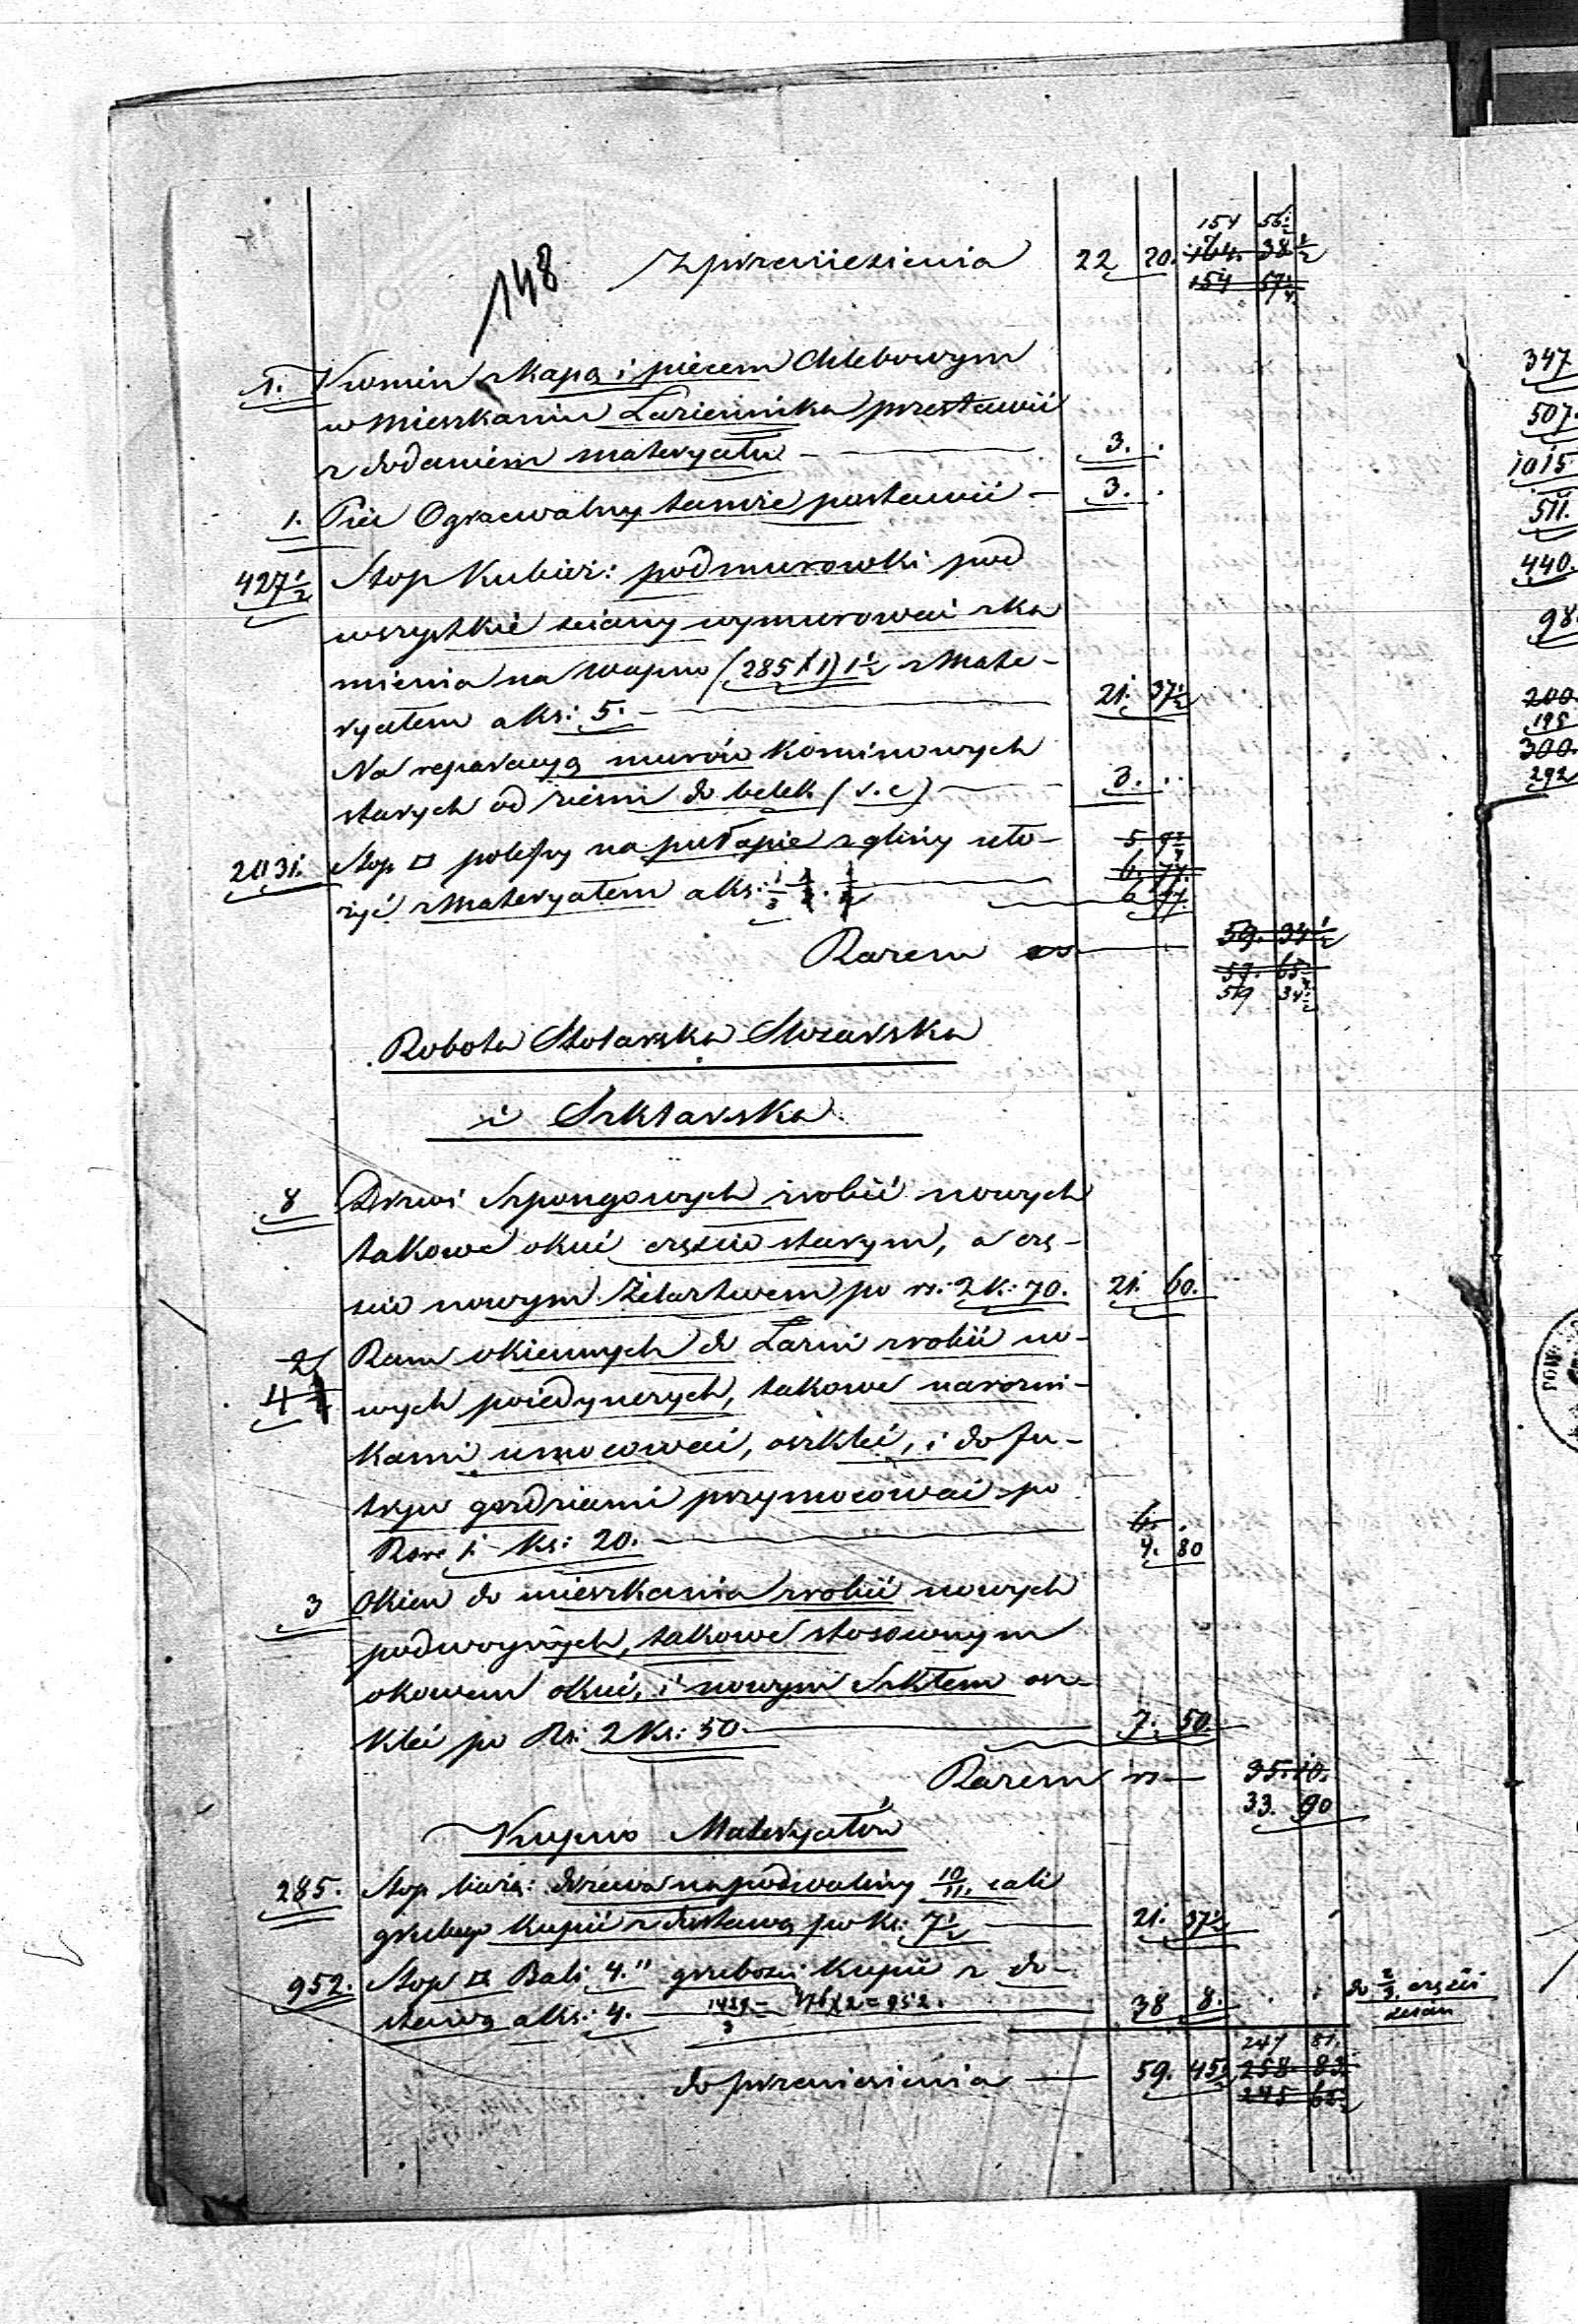 148
z przeniesienia 22 20. 154 56 1/2
164. 38 1/2
154 57 1/4
1. Komin z kapą i piecem Chlebowym
w mieszkaniu Łaziennika przestawić
z dodaniem materyału — 3. .
1. Piec Ogrzewalny tamże postawić — 3. .
427 1/2 Stop Kubicz: podmurowki pod
wszystkie ściany wymurować z ka
mienia na wapno (285 X 1) 1 1/2 z Mate-
ryałem a ks: 5. — 21. 37 1/2
Na reparacyą murów Kominowych
starych od ziemi do belek (r. c) — 3. ..
2031. Stop □ polepy na pułapie z gliny uło- 5 9
6. 77.
żyć z Materyałem a ks: 1/3 — 6 77.
Razem rs — 59. 34 1/2
59. 65
59 34 1/2
Robota Stolarska Slosarska
i Szklarska
8 Drzwi Szpongowych zrobić nowych
takowe okuć częścio starym, a czę-
ścio nowym Żelaztwem po rs: 2 k: 70. 21. 60.
2 Ram okiennych do Łazni zrobić no-
4 wych poiedynczych, takowe narożni-
kami umocować, oszklić, i do fu-
tryn gozdziami przymocować po
Rsr 1 ks: 20. — 6. .
4. 80
3 Okien do mieszkania zrobić nowych
podwoynych, takowe stosownym
okowem okuć, i nowym Szkłem osz-
klić po Rs: 2 Ks: 50. — 7. 50.
Razem rs — 35. 10.
33. 90
Kupno Materyałów
285. Stop bieżą: drzewa na podwaliny 10/11. cali
grubego kupić z dostawą po ks: 7 1/2 — 21. 37 1/2
952. Stop □ Bali 4." grubości kupić z do-
stawą a ks: 4. — 1429/3 = 476 X 2 = 952. 38 8. do 2/3 części
ścian
247 81.
do przeniesienia — 59. 45 1/2 258. 83
245 62 1/2
347
507.
1015
511.
440.
98.
200
195
300
292
POW.